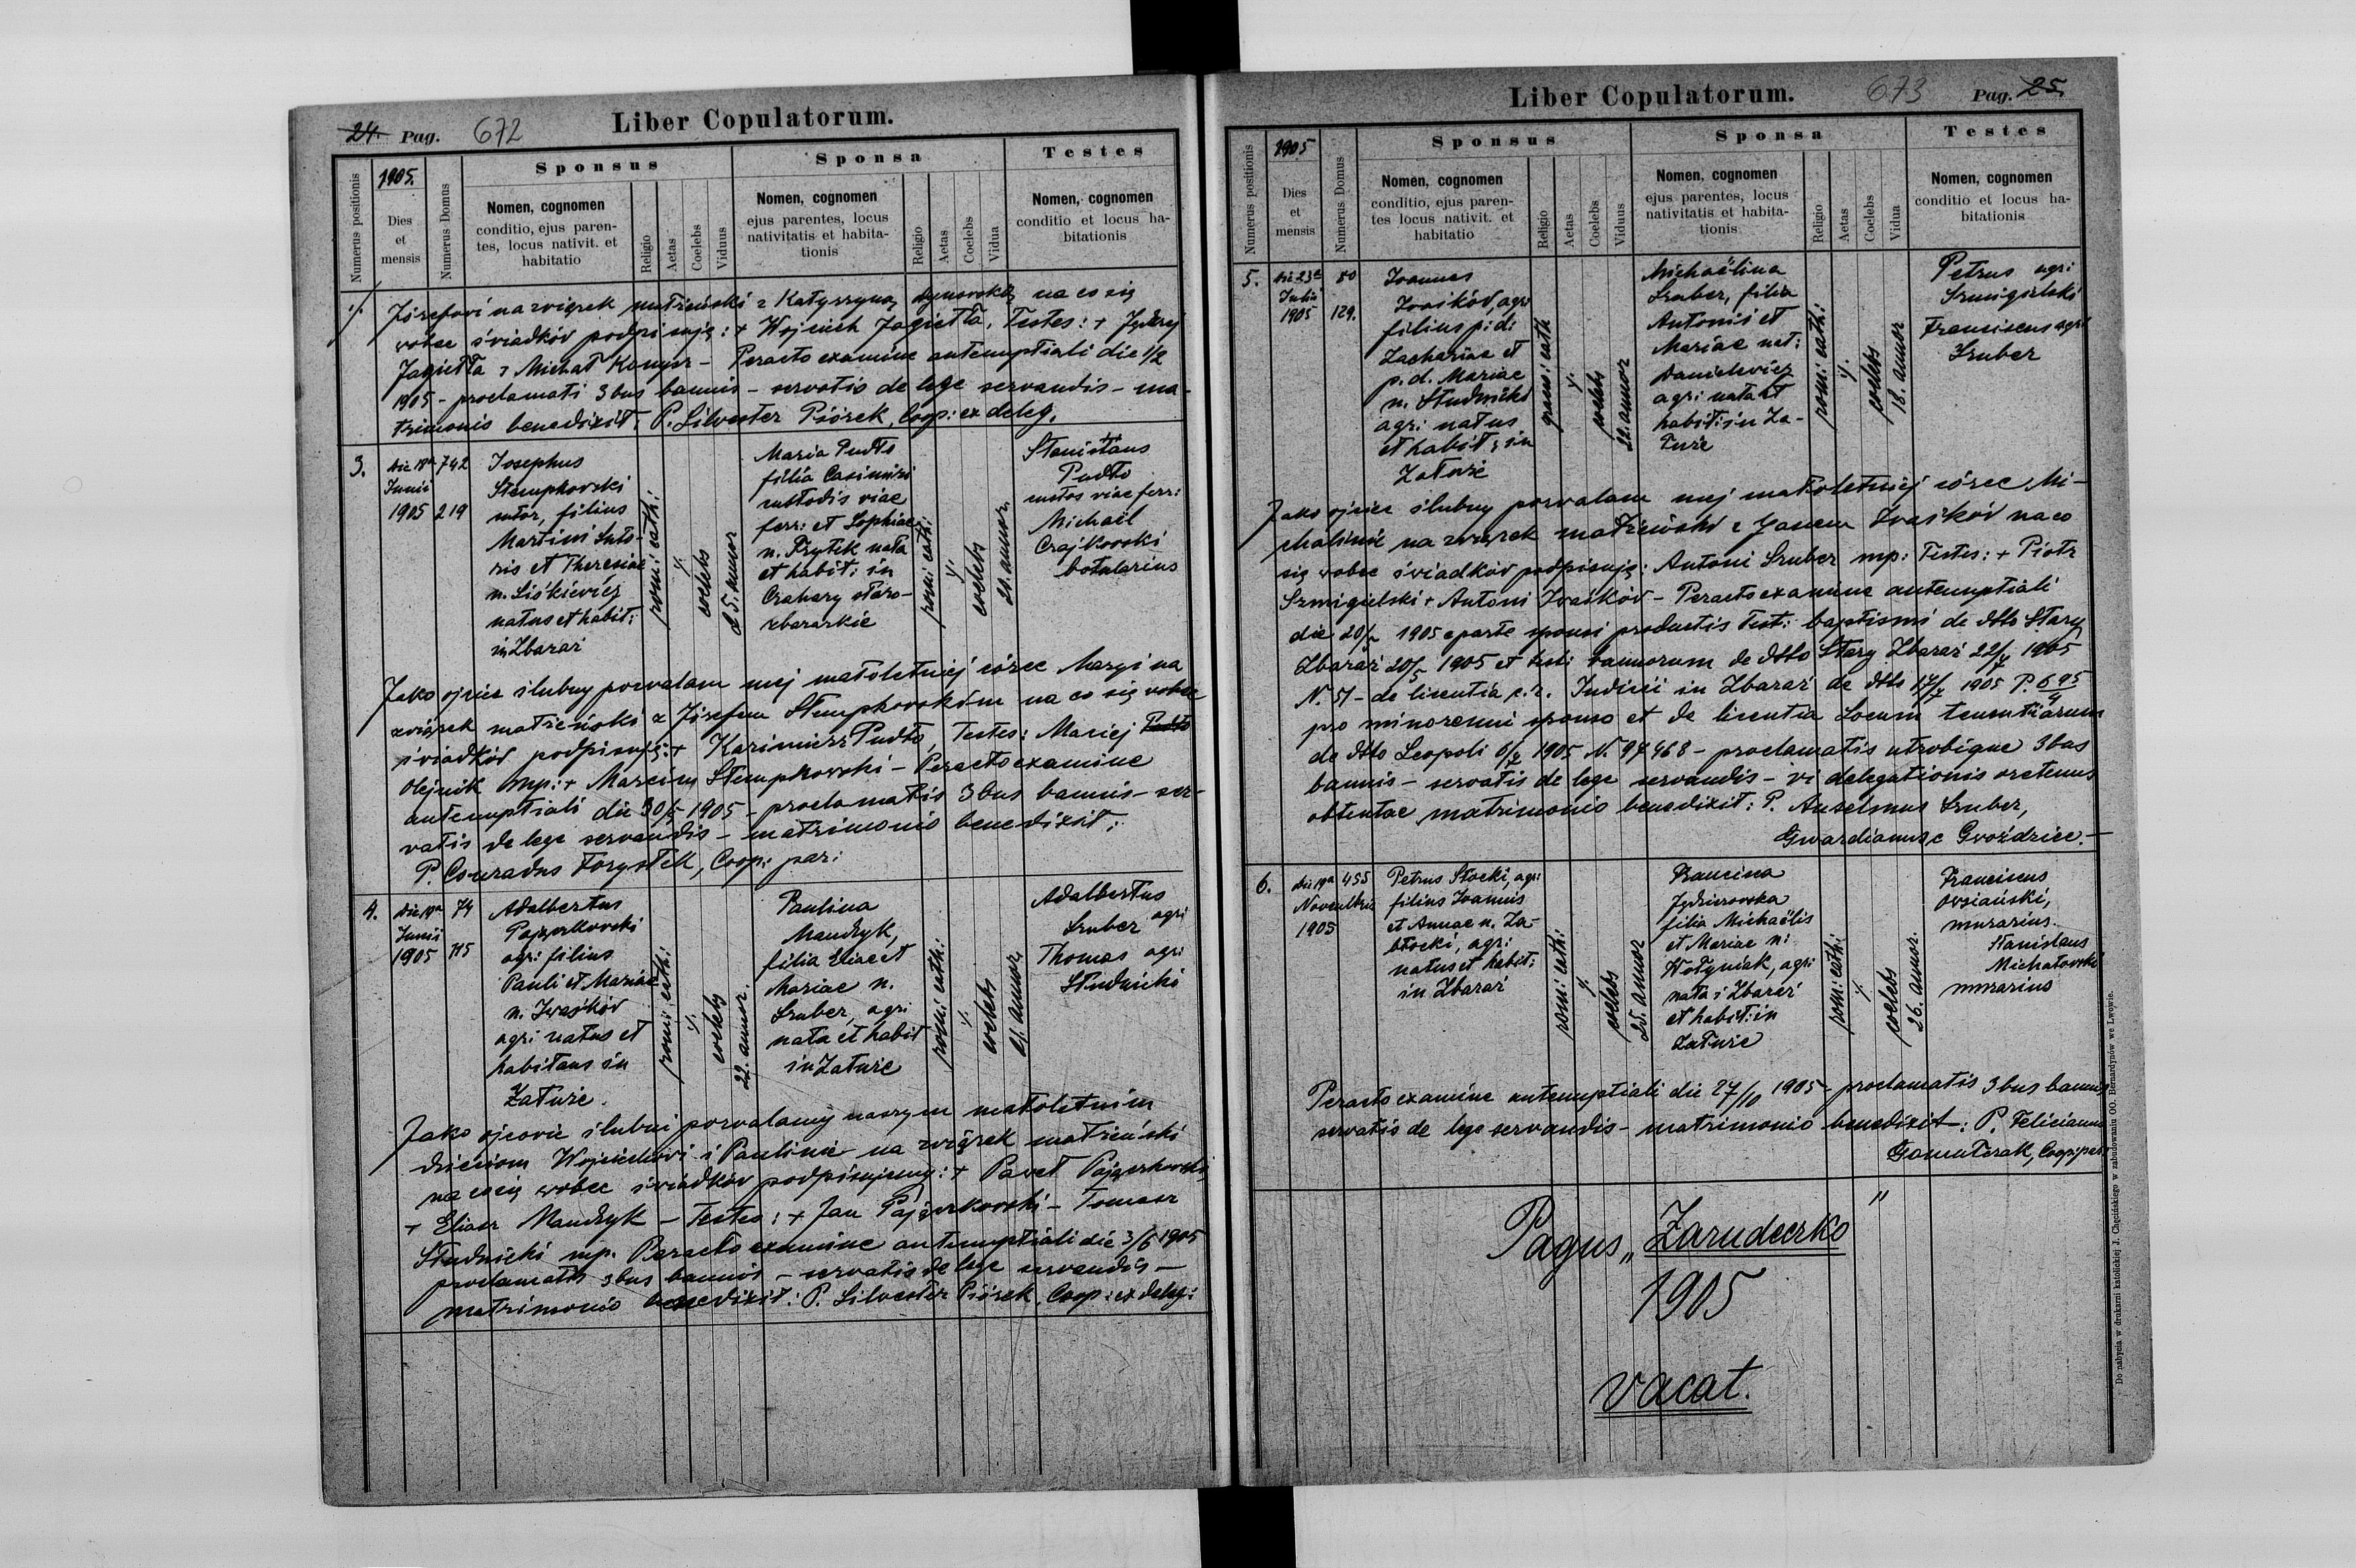 24. Pag. 672
Liber Copulatorum.
Numerus positionis
1905.
Dies
et
mensis
Numerus Domus
Sponsus
Nomen, cognomen
conditio, ejus paren-
tes, locus nativit. et
habitatio
Religio
Aetas
Coelebs
Viduus
Sponsa
Nomen, cognomen
ejus parentes, locus
nativitatis et habita-
tionis
Religio
Aetas
Coelebs
Vidua
Testes
Nomen, cognomen
conditio et locus ha-
bitationis
Józefowi na związek małżeński z Katarzyną na co się
wobec świadków podpisuję: + Wojciech Jagiełła. Testes: + Jędrzej
Jagiełła + Michał Konysz - Peracto examine antenuptiali die 1/2
1905 - proclamati 3bus bannis - servatis de lege servandis - ma-
trimonio benedixit. P. Silvester Piórek, Coop: ex deleg.
3.
die 18a
Junii
1905
742
219
Josephus
Stempkowski
sutor, filius
Martini suto-
ris et Theresiae
n. Liśkiewicz
natus et habit:
in Zbaraż
rom: cath:
coelebs
25. annor
Maria Pudło
filia Casimiri
custodis viae
ferr: et Sophiae
n. Przytek nata
et habit: in
Czahary staro-
zbaraskie
rom: cath:
coelebs
21. annor.
Stanisłaus
Pudło
custos viae ferr:
Michaël
Czajkowski
botularius
Jako ojciec ślubny pozwalam mej małoletniej córce Maryi na
związek małżeński z Józefem Stempkowskim na co się wobec
świadków podpisuję: + Kazimierz Pudło, Testes: Maciej Pudło
Olejnik mp: + Marcin Stempkowski - Peracto examine
antenuptiali die 30/5 1905 - proclamatis 3bus bannis - ser-
vatis de lege servandis - matrimonio benedixit:
P. Conradus Forystek, Coop: par:
4.
die 19a
Junii
1905
74
115
Adalbertus
Pajączkowski
agr: filius
Pauli et Mariae
n. Iwaśków
agr: natus et
habitans in
Załuże.
rom: cath:
coelebs
22. annor.
Paulina
Mandzyk,
filia Eliae et
Mariae n.
Gruber, agr:
nata et habit
in Załuże
rom: cath:
coelebs
21. annor.
Adalbertus
Gruber agri
Thomas agr:
Studnicki
Jako ojcowie ślubni pozwalamy naszym małoletnim
dzieciom Wojciechowi i Paulinie na związek małżeński
na co się wobec świadków podpisujemy: + Paweł Pajączkowski,
+ Eliasz Mandzyk - Testes: + Jan Pajączkowski - Tomasz
Studnicki mp. Peracto examine antenuptiali die 3/6 1905
proclamatis 3bus bannis - servatis de lege servandis -
matrimonio benedixit: P. Silvester Piórek, Coop: ex deleg:
Liber Copulatorum.
673 Pag. 25.
Numerus positionis
1905
Dies
et
mensis
Numerus Domus
Sponsus
Nomen, cognomen
conditio, ejus paren-
tes locus nativit. et
habitatio
Religio
Aetas
Coelebs
Viduus
Sponsa
Nomen, cognomen
ejus parentes, locus
nativitatis et habita-
tionis
Religio
Aetas
Coelebs
Vidua
Testes
Nomen, cognomen
conditio et locus ha-
bitationis
5.
die 23a
Julii
1905
80
129.
Joannes
Iwaśków, agr
filius p: d:
Zachariae et
p. d. Mariae
n. Studnicki
agr: natus
et habit: in
Załuże
graec: cath
coelebs
22. annor
Michaëlina
Gruber, filia
Antonii et
Mariae nat:
Danielewicz
agr: nata et
habit: in Za-
łuże
rom: cath:
coelebs
18. annor
Petrus agr:
Szmigielski
Franciscus agri
Gruber
Jako ojciec ślubny pozwalam mej małoletniej córce Mi-
chalinie na związek małżeński z Janem Iwaśków na co
się wobec świadków podpisuję: Antoni Gruber mp: Testes: + Piotr
Szmigielski + Antoni Iwaśków - Peracto examine antenuptiali
die 20/5 1905 a parte sponsi productis test: baptismi de dtto Stary
Zbaraż 20/5 1905 et test: bannorum de dtto Stary Zbaraż 22/7 1905
N. 51 - de licentia c. r. Judicii in Zbaraż de dtto 17/7 1905 P. 695/4
pro minorenni sponso et de licentia Locum tenentiarum
de dtto Leopoli 6/7 1905 N. 97468 - proclamatis utrobique 3bus
bannis - servatis de lege servandis - vi delegationis oretenus
obtentae matrimonio benedixit: P. Anselmus Gruber,
Gwardianus e Gwoździec. -
6.
die 19a
Novembris
1905
455
Petrus Słocki, agr:
filius Joannis
et Annae n. Za-
błocki, agr:
natus et habit:
in Zbaraż
rom: cath:
coelebs
25. annor
Francisca
Jędrzejowska
filia Michaëlis
et Mariae n:
Wołyniak, agr:
nata i Zbaraż
et habit: in
Załuże
rom: cath:
coelebs
26. annor.
Franciscus
Owsiański,
murarius.
Stanislaus
Michałowski
murarius
Peracto examine antenuptiali die 27/10 1905 - proclamatis 3bus bannis
servatis de lege servandis - matrimonio benedixit: P. Felicianus
Gomułczak, Coop: par:
Pagus „Zarudeczko"
1905
vacat.
Do nabycia w drukarni katolickiej J. Chęcińskiego w zabudowaniu OO. Bernardynów we Lwowie.